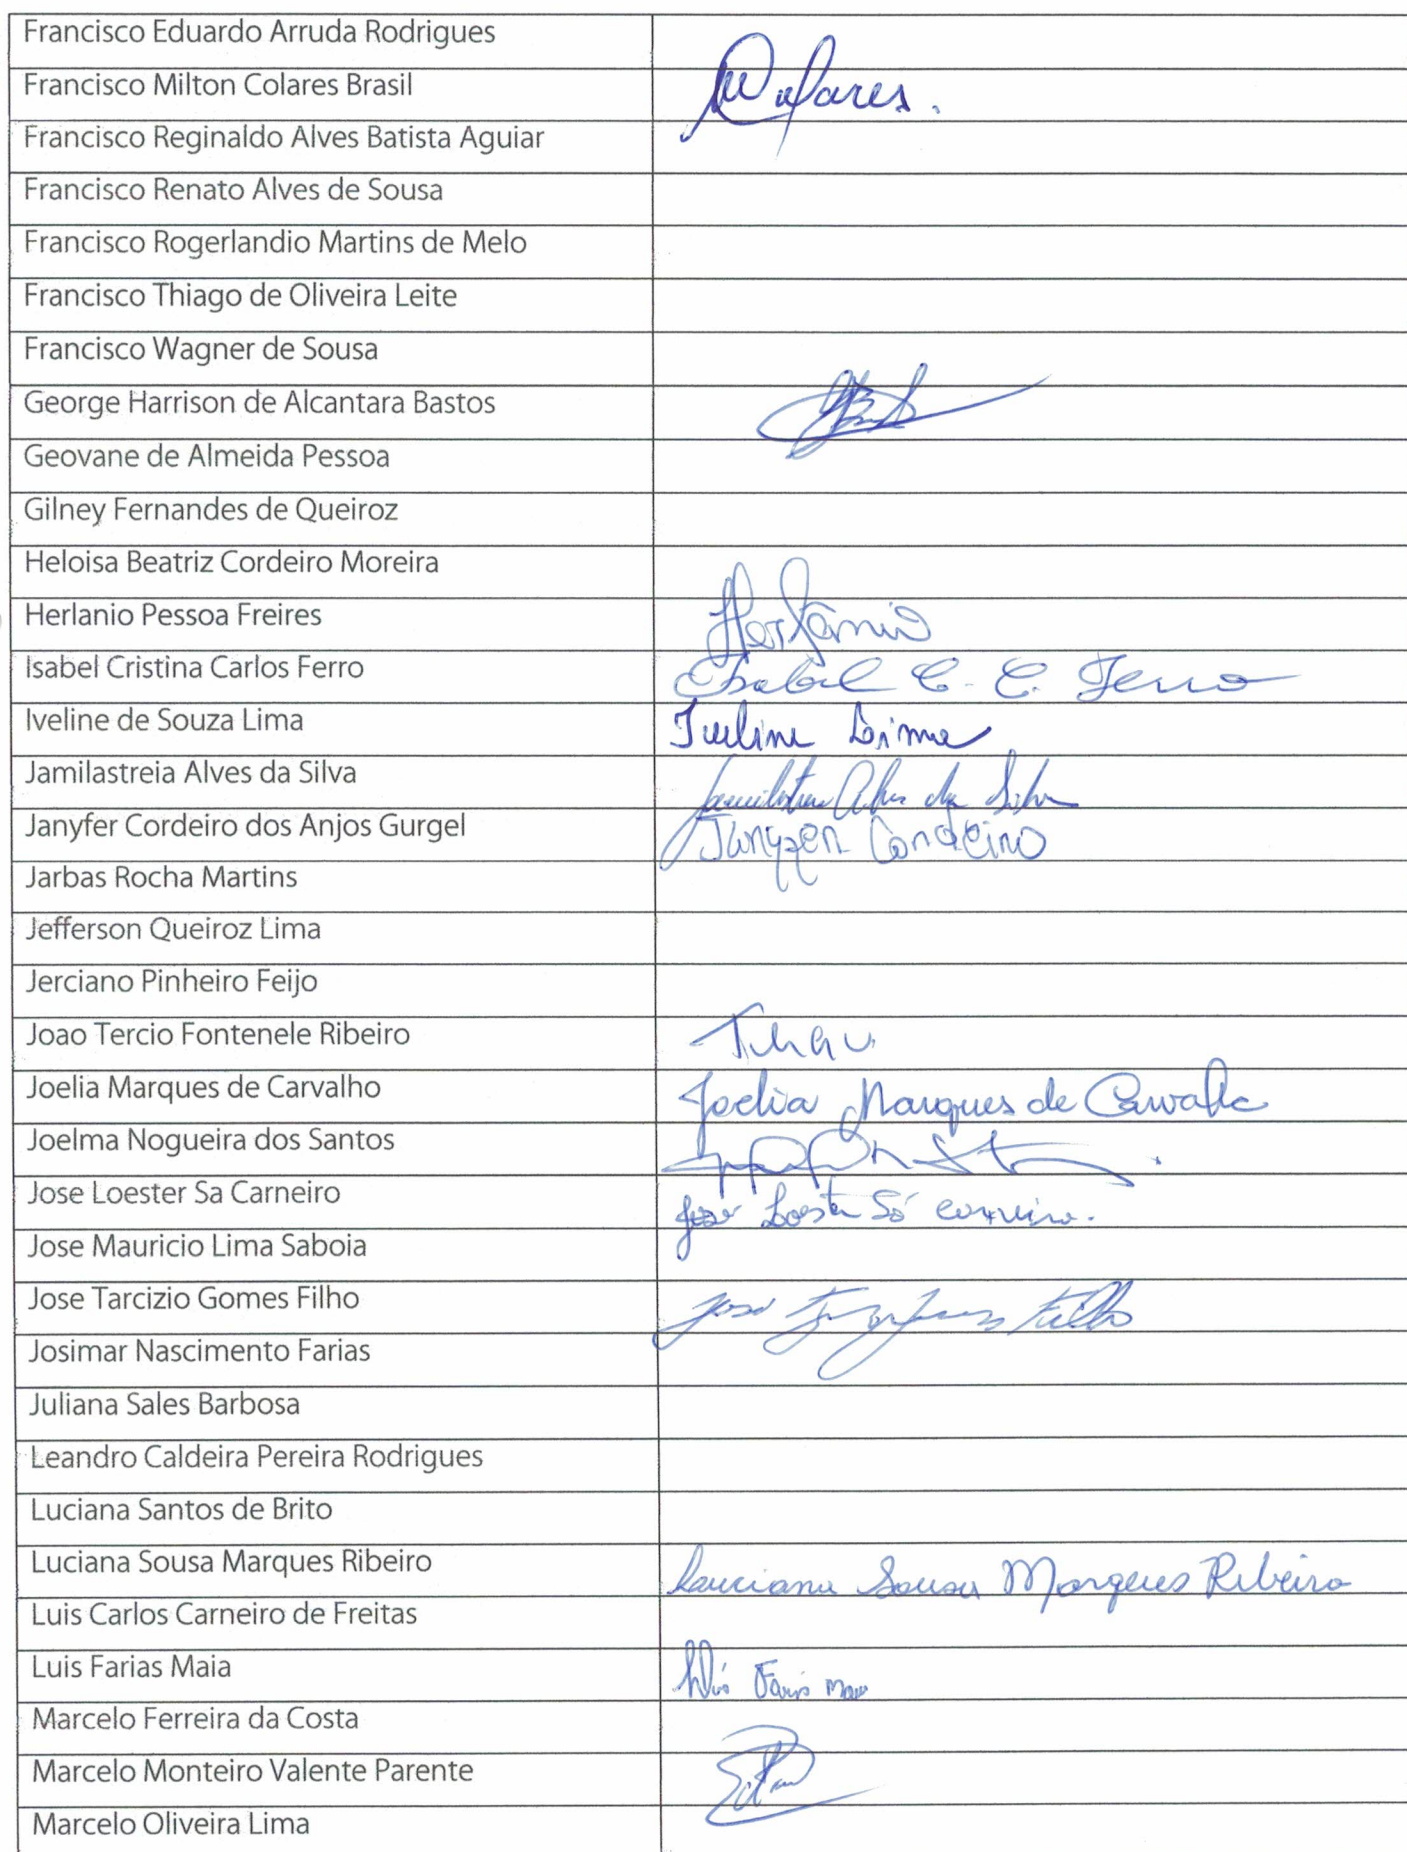 Francisco Eduardo Arruda Rodrigues
Francisco Milton Colares Brasil
Francisco Reginaldo Alves Batista Aguiar
Francisco Renato Alves de Sousa
Francisco Rogerlandio Martins de Melo
Francisco Thiago de Oliveira Leite
Francisco Wagner de Sousa
George Harrison de Alcantara Bastos
Geovane de Almeida Pessoa
Gilney Fernandes de Queiroz
Heloisa Beatriz Cordeiro Moreira
Herlanio Pessoa Freires Herlânio
Isabel Cristina Carlos Ferro Isabel C. C. Ferro
Iveline de Souza Lima Iveline Lima
Jamilastreia Alves da Silva Jamilastreia Alves da Silva
Janyfer Cordeiro dos Anjos Gurgel Janyfer Cordeiro
Jarbas Rocha Martins
Jefferson Queiroz Lima
Jerciano Pinheiro Feijo
Joao Tercio Fontenele Ribeiro
Joelia Marques de Carvalho Joelia Marques de Carvalho
Joelma Nogueira dos Santos
Jose Loester Sa Carneiro José Loester Sá Carneiro.
Jose Mauricio Lima Saboia
Jose Tarcizio Gomes Filho José Filho
Josimar Nascimento Farias
Juliana Sales Barbosa
Leandro Caldeira Pereira Rodrigues
Luciana Santos de Brito
Luciana Sousa Marques Ribeiro Luciana Sousa Marques Ribeiro
Luis Carlos Carneiro de Freitas
Luis Farias Maia Luís Farias Maia
Marcelo Ferreira da Costa
Marcelo Monteiro Valente Parente
Marcelo Oliveira Lima